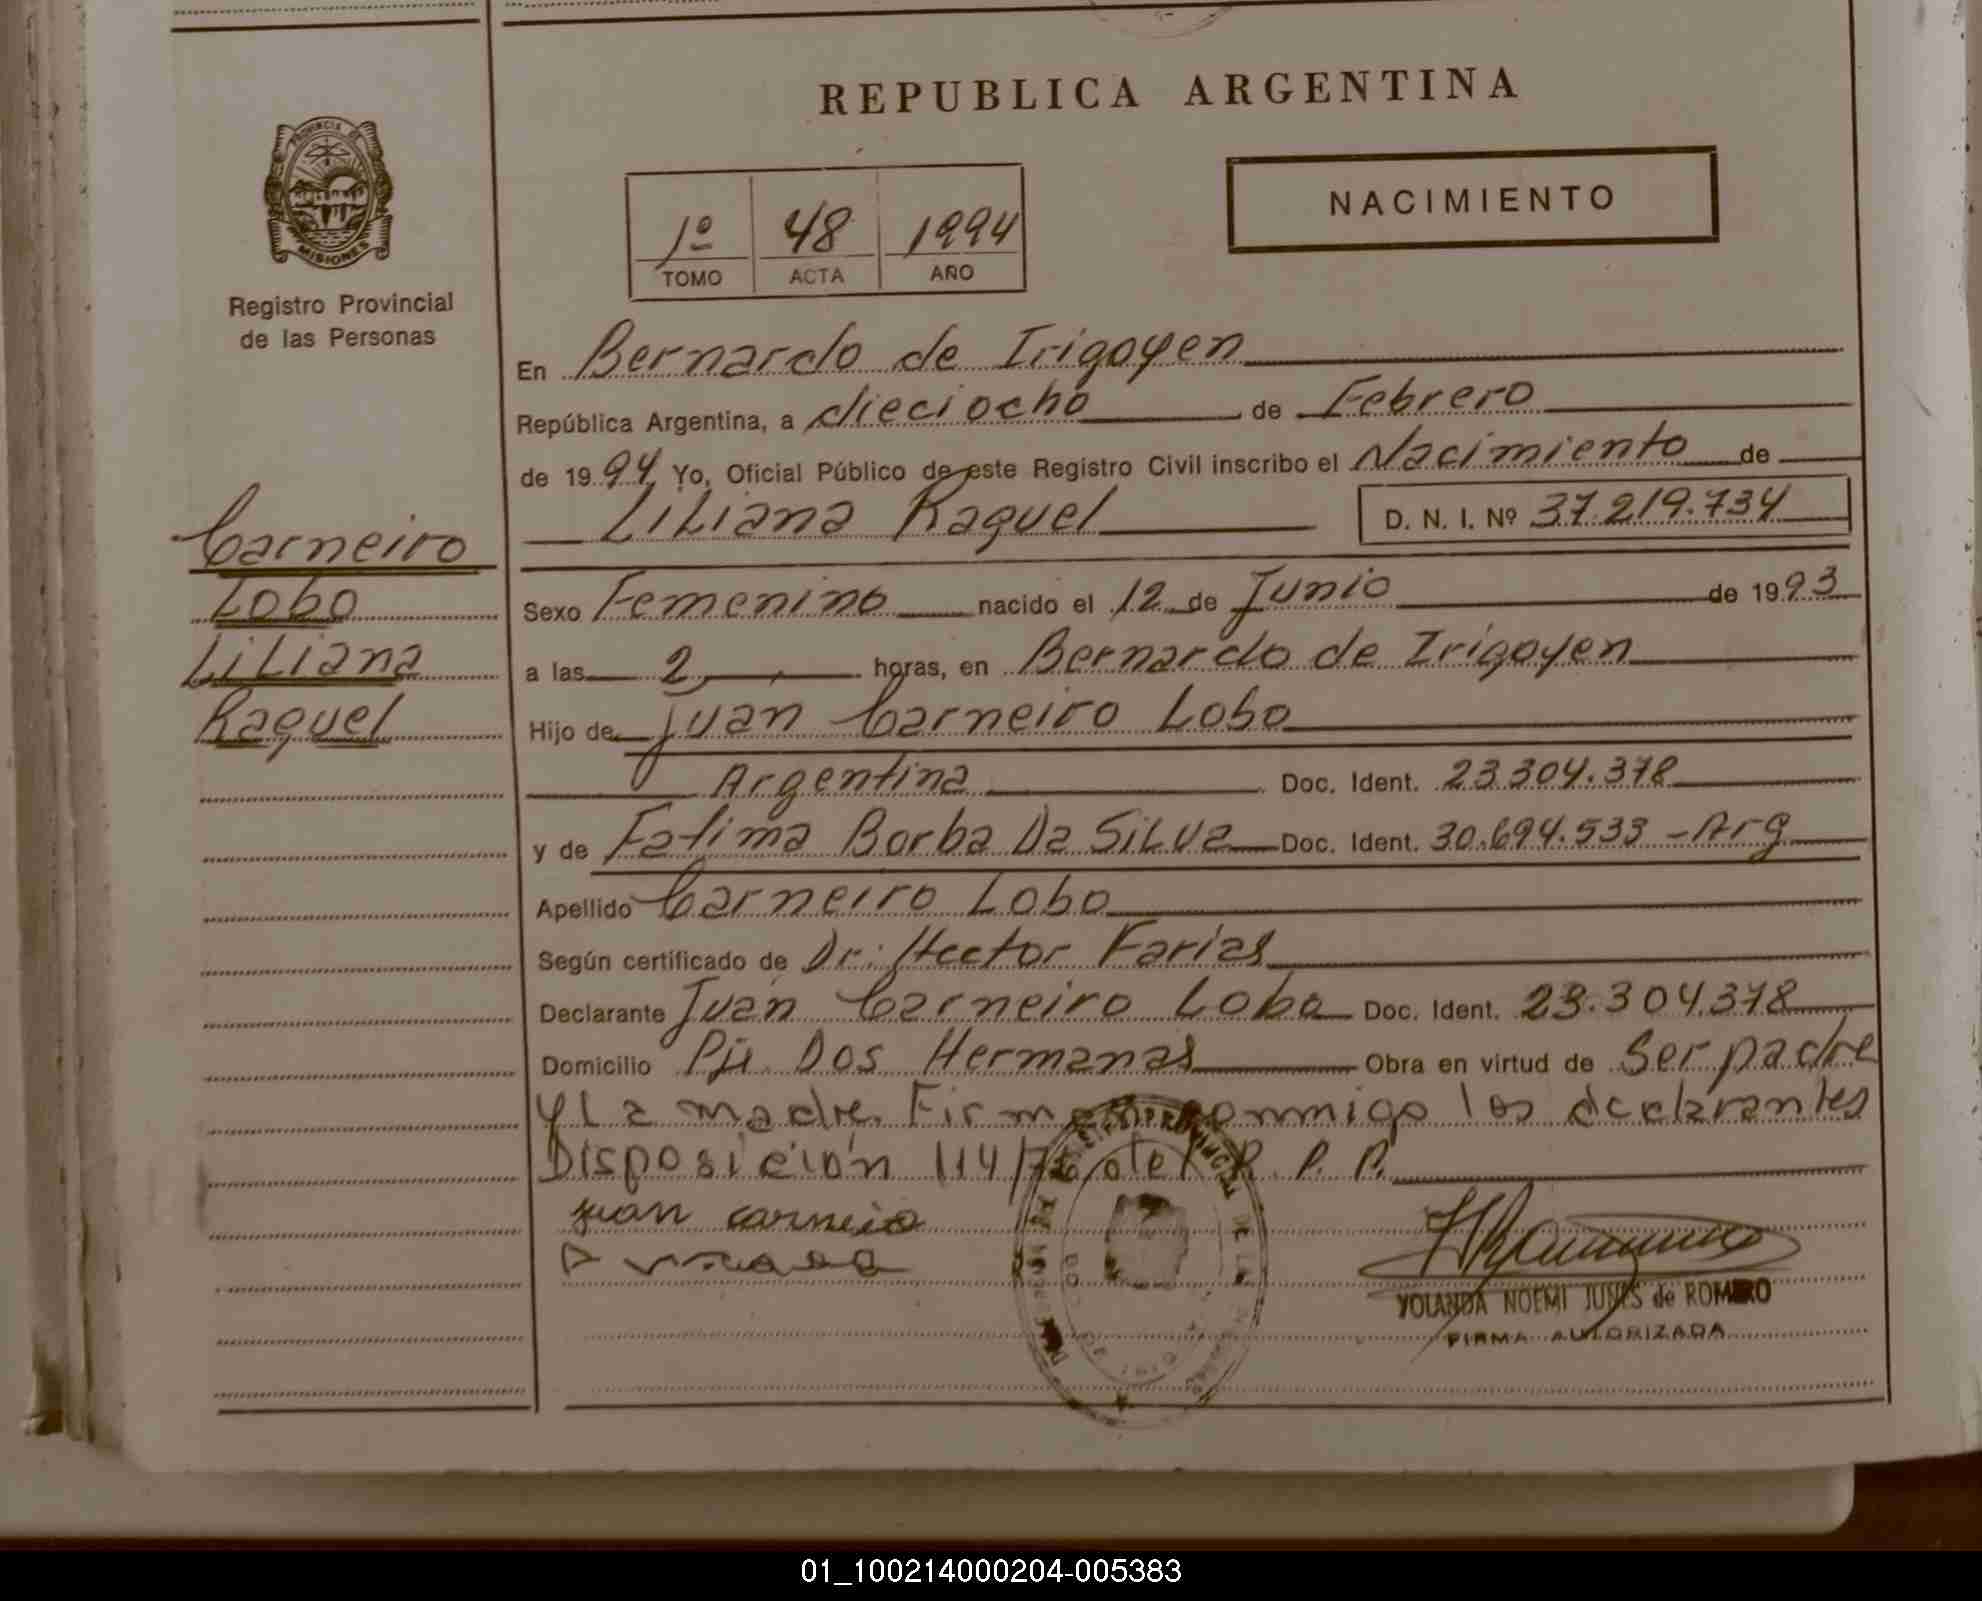 REPUBLICA ARGENTINA
PROVINCIA DE
MISIONES
Registro Provincial
de las Personas
1º 48 1994
TOMO ACTA AÑO
NACIMIENTO
Carneiro
Lobo
Liliana
Raquel
En Bernardo de Irigoyen
República Argentina, a dieciocho de Febrero
de 1994 Yo, Oficial Público de este Registro Civil inscribo el Nacimiento de
Liliana Raquel D. N. I. Nº 37.219.734
Sexo Femenino nacido el 12 de Junio de 1993
a las 2, horas, en Bernardo de Irigoyen
Hijo de Juan Carneiro Lobo
Argentina Doc. Ident. 23.304.378
y de Fatima Borba Da Silva Doc. Ident. 30.694.533 - Arg
Apellido Carneiro Lobo
Según certificado de Dr. Hector Farias
Declarante Juan Carneiro Lobo Doc. Ident. 23.304.378
Domicilio Pje Dos Hermanas Obra en virtud de Ser padre
y La madre. Firman conmigo los declarantes
Disposición 114/76 del R. P. P.
juan carneio
YOLANDA NOEMI JUNES de ROMERO
FIRMA AUTORIZADA
01_100214000204-005383